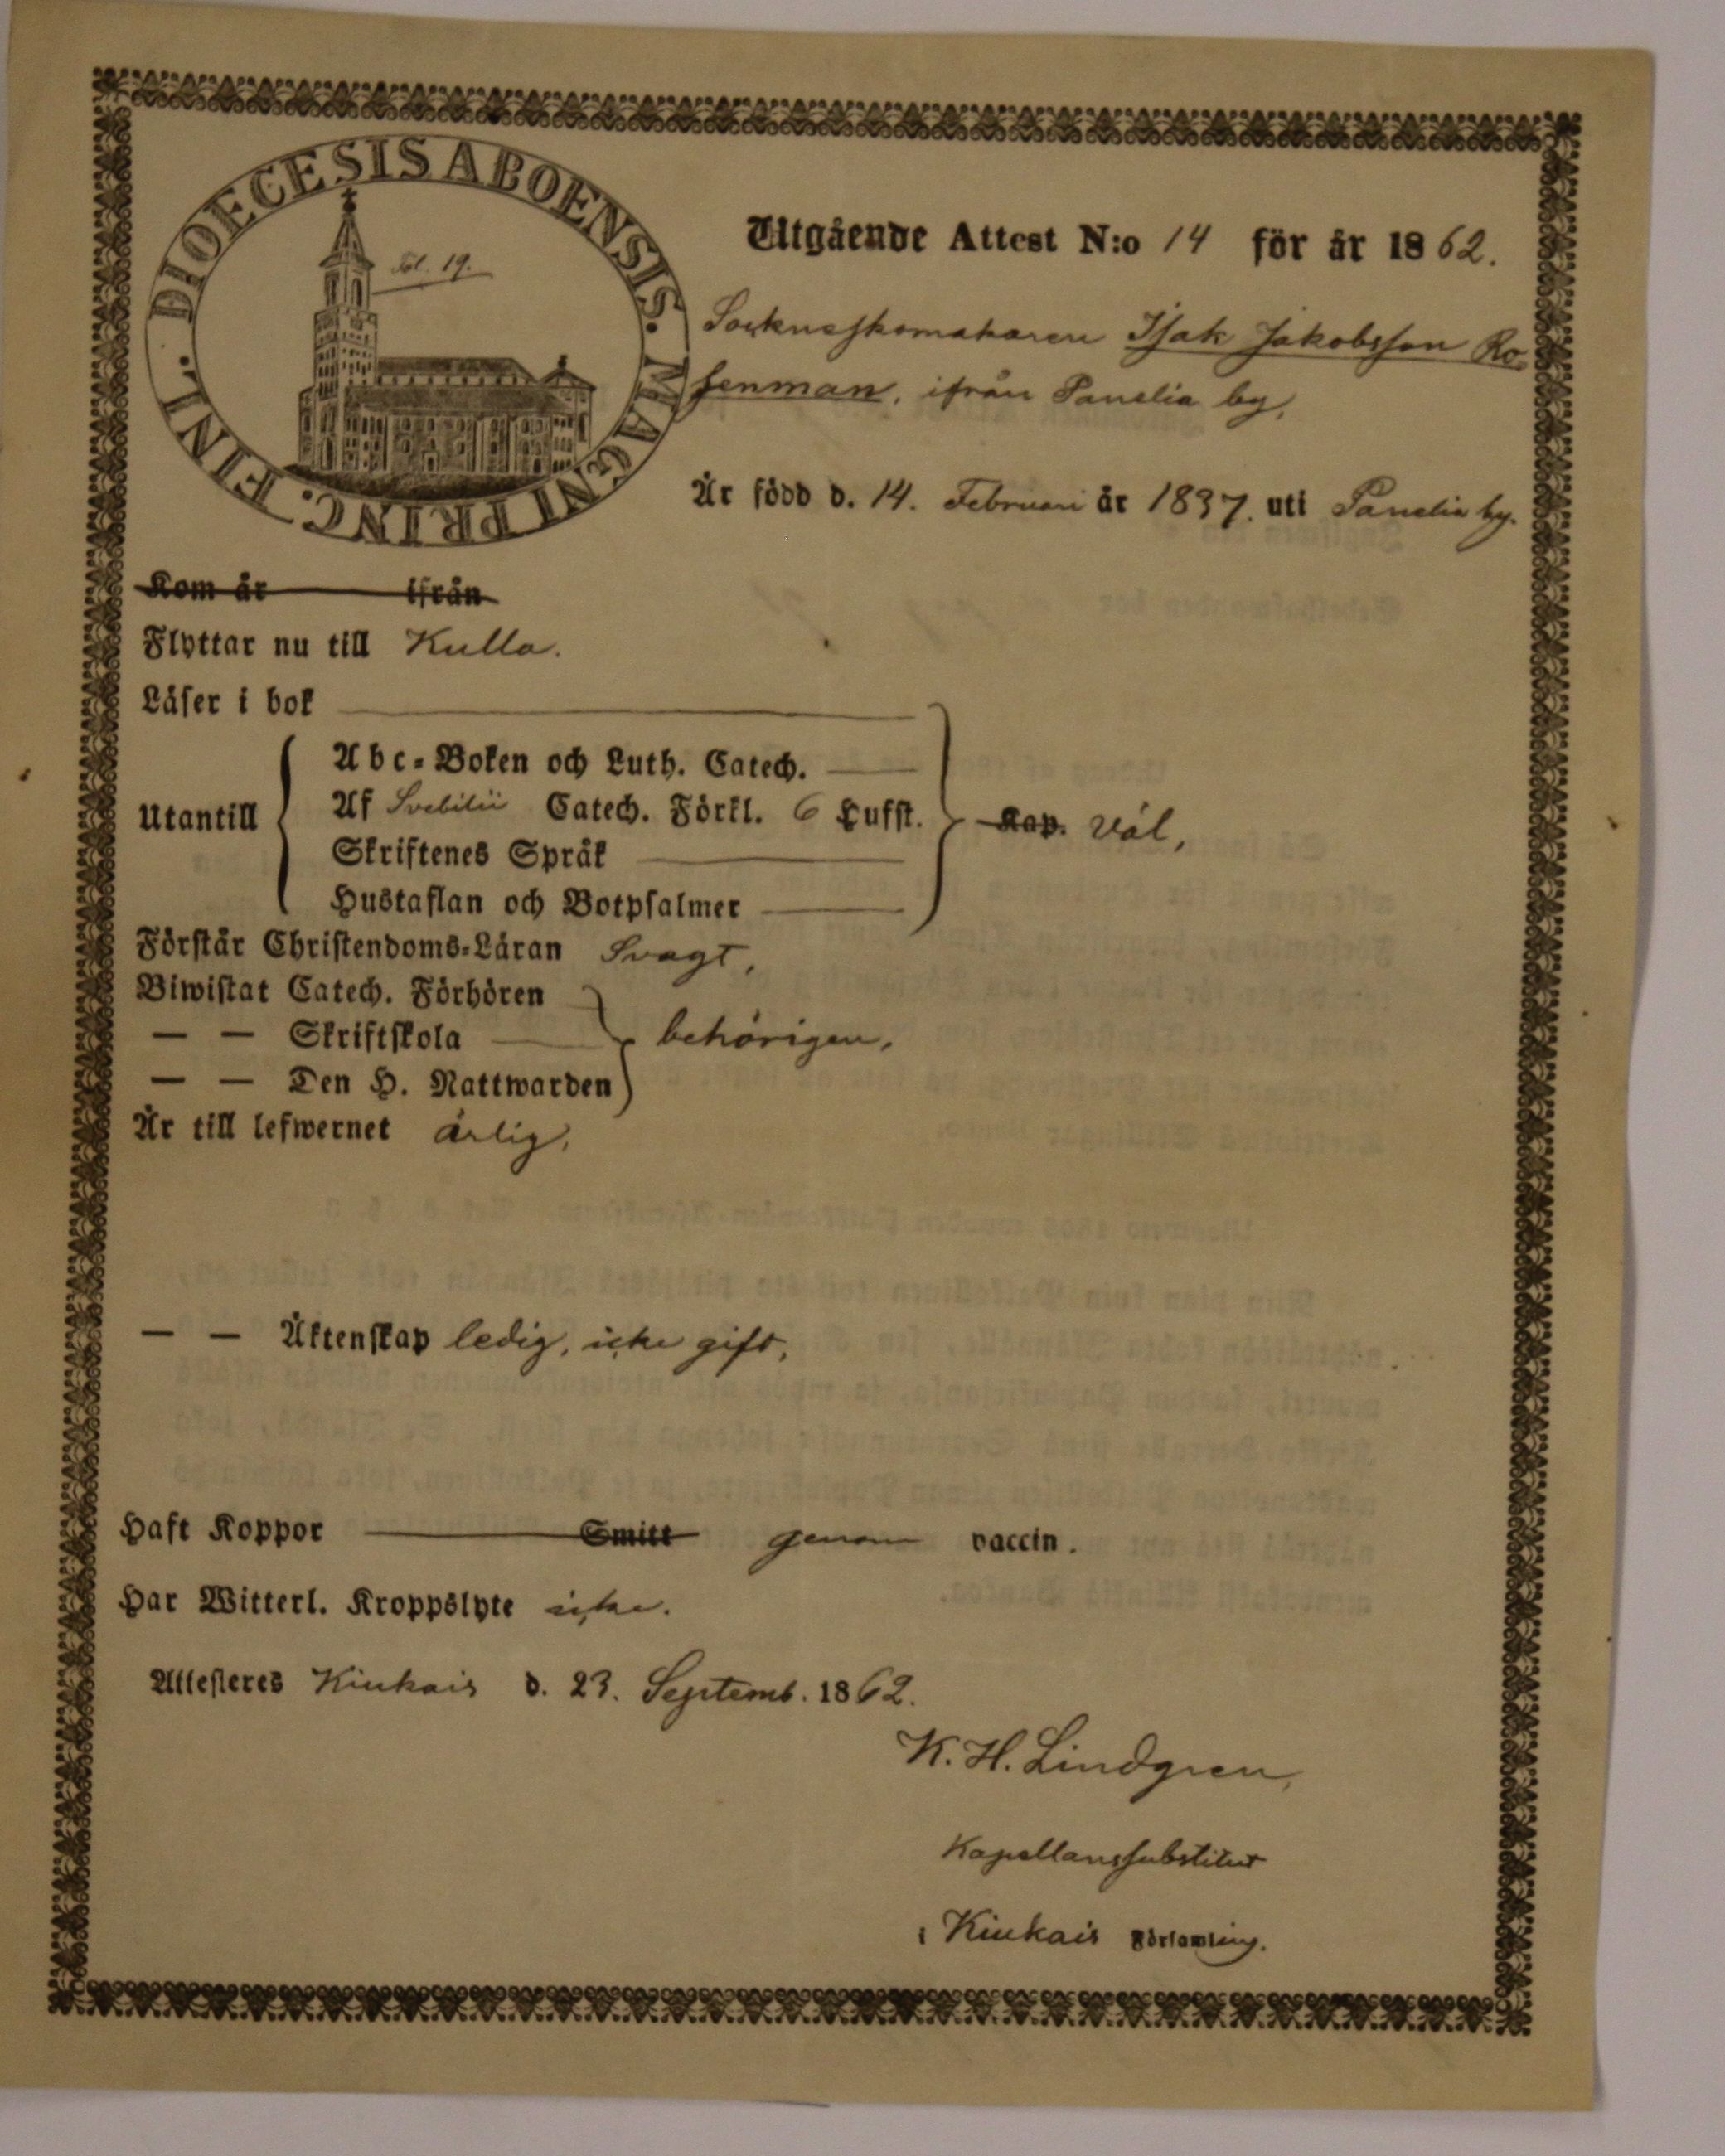 DIOECESIS ABOENSIS. MAGNI PRINC. FINL.
Fol. 19.
Utgående Attest N:o 14 för år 1862.
Sockneskomakaren Isak Jakobsson Ro-
senman, ifrån Panelia by,
Är född d. 14. Februari år 1837. uti Panelia by.
Kom år ifrån
Flyttar nu till Kulla.
Läser i bok
Utantill
Abc-Boken och Luth. Catech.
Af Svebilii Catech. Förkl. 6 Hufst.
Skriftenes Språk
Hustaflan och Botpsalmer
Kap. väl,
Förstår Christendoms-Läran Svagt,
Biwistat Catech. Förhören
— — Skriftskola
— — Den H. Nattwarden
behörigen,
Är till lefwernet ärlig,
— — Äktenskap ledig, icke gift,
Haft Koppor Smitt genom vaccin.
Har Witterl. Kroppslyte icke.
Attesteres Kiukais d. 23. Septemb. 1862.
K. H. Lindgren,
Kapellanssubstitut
i Kiukais Församling.